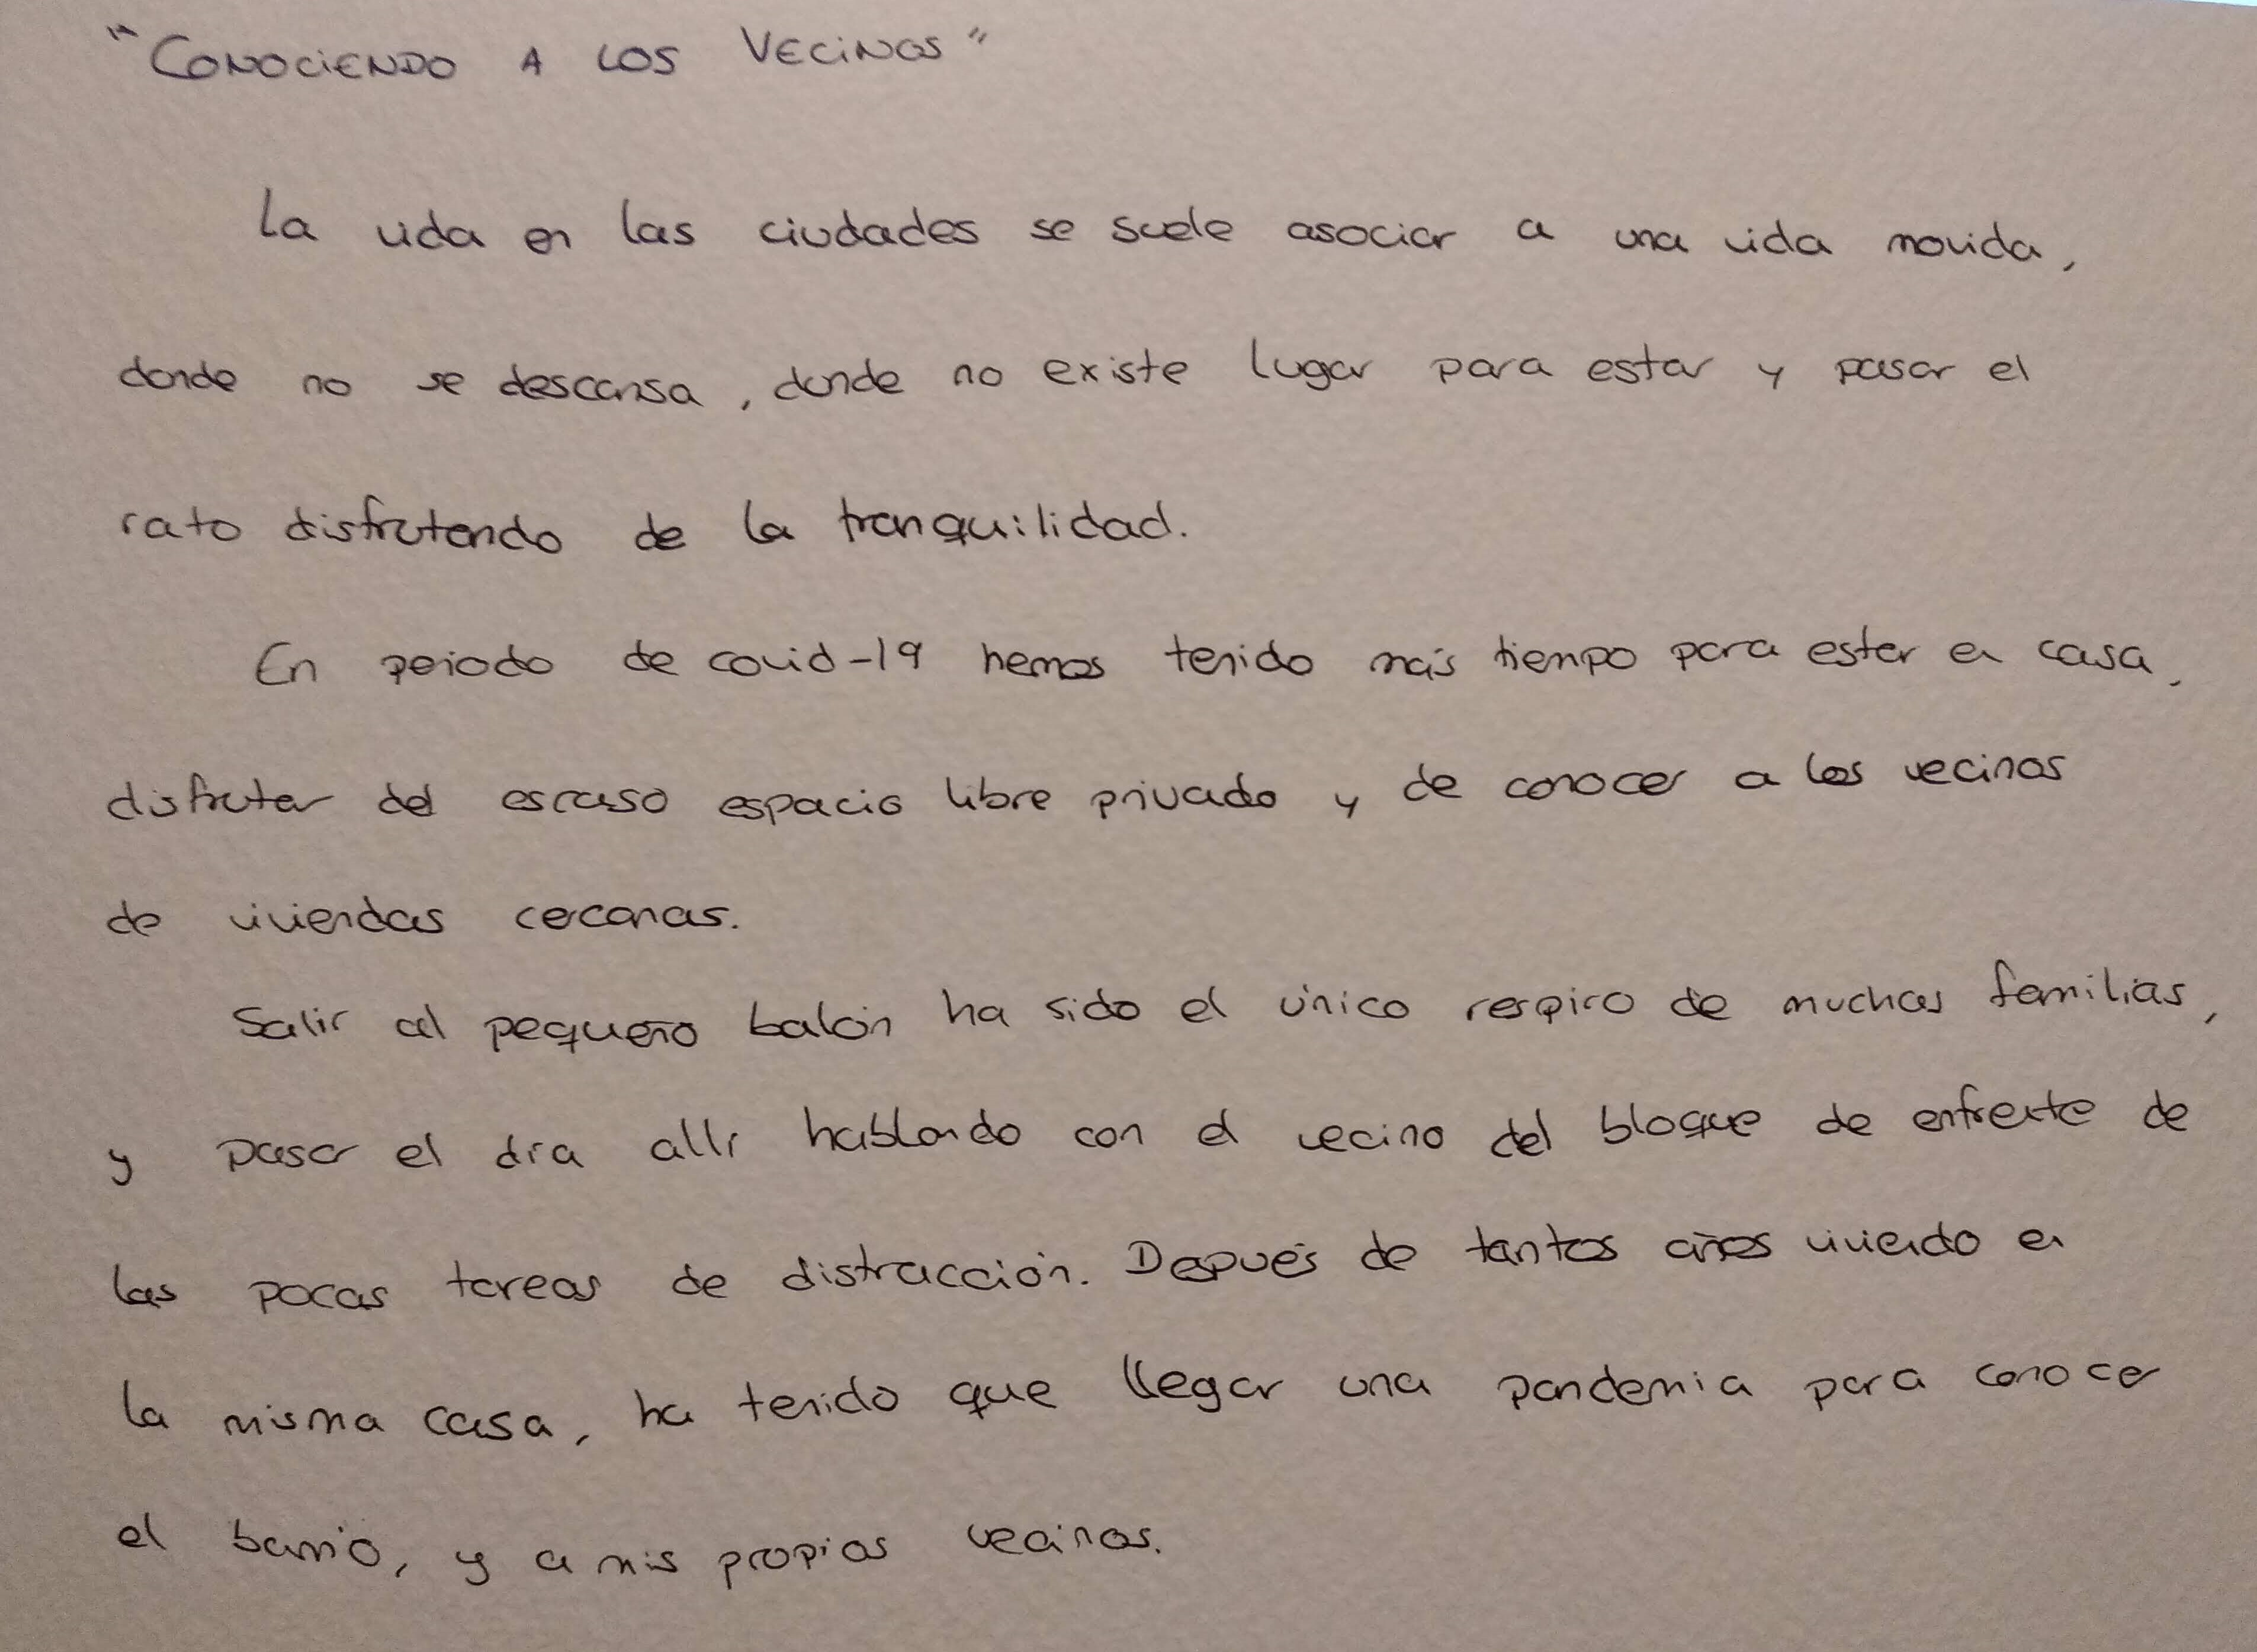 "CONOCIENDO A LOS VECINOS"
La vida en las ciudades se suele asociar a una vida movida,
donde no se descansa, donde no existe lugar para estar y pasar el
rato disfrutando de la tranquilidad.
En periodo de covid-19 hemos tenido más tiempo para estar en casa,
disfrutar del escaso espacio libre privado y de conocer a los vecinos
de viviendas cercanas.
Salir al pequeño balcón ha sido el único respiro de muchas familias,
y pasar el día allí hablando con el vecino del bloque de enfrente de
las pocas tareas de distracción. Después de tantos años viviendo en
la misma casa, ha tenido que llegar una pandemia para conocer
el barrio, y a mis propios vecinos.